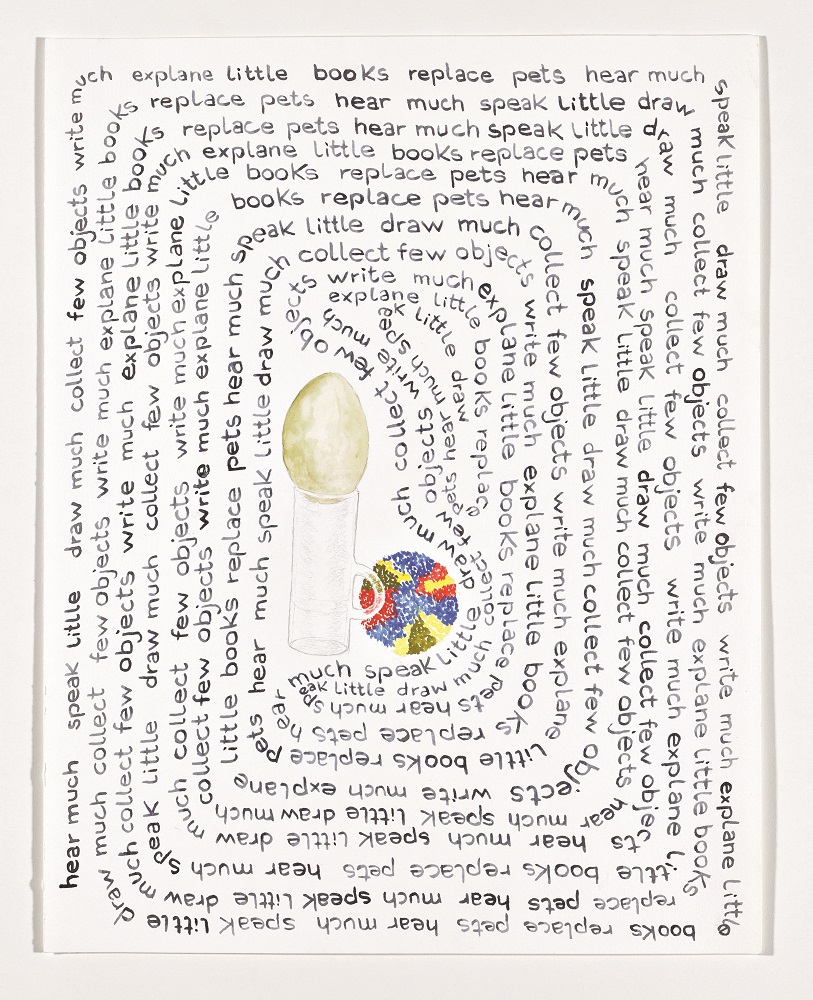 hear much speak little draw much collect few objects write
much explane little books replace pets hear much
speak little draw much collect few objects write much explane little
books replace pets hear much speak little
draw much collect few objects write much explane little books
replace pets hear much speak little draw
much collect few objects write much explane little books
replace pets hear much speak little draw
much collect few objects write much explane little books
replace pets hear much speak little draw
much collect few objects write much explane little
books replace pets hear much
speak little draw much collect few objects write much
explane little books replace pets
hear much speak little draw much collect few objects
hear much speak little draw
much collect few objects write much explane little
books replace pets hear
much speak little draw much collect few objects
hear much speak little draw much
collect few objects write much explane little
books replace pets hear much
speak little draw much collect few objects
write much explane
little books replace pets hear much speak
little draw much
collect few objects write much explane
little books replace
pets hear much speak little draw much
collect few objects
write much explane little books
replace pets hear
much speak little draw much collect
few objects write much
explane little books replace pets
hear much speak little draw much
collect few objects
write much
explane little books replace
pets hear much speak little draw